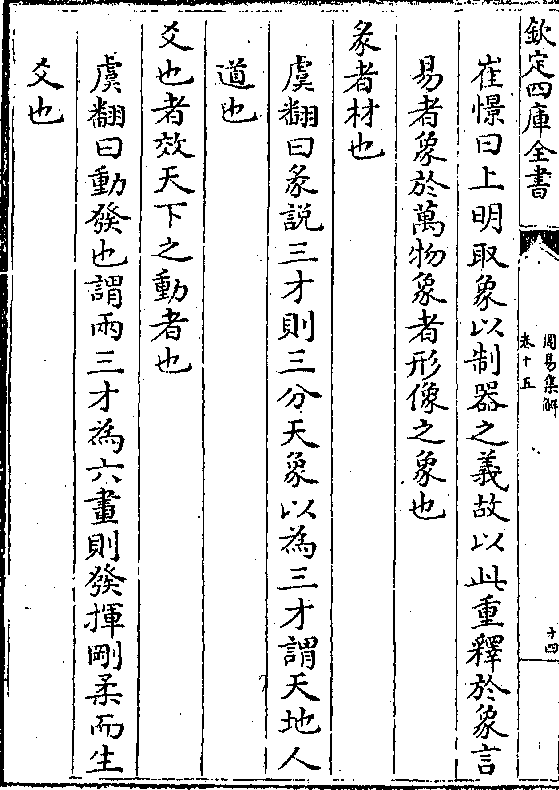 欽定四庫全書
周易集解
卷十五
十四
崔憬曰上明取象以制器之義故以此重釋於象言
易者象於萬物象者形像之象也
彖者材也
虞翻曰彖説三才則三分天象以為三才謂天地人
道也
爻也者效天下之動者也
虞翻曰動發也謂兩三才為六畫則發揮剛柔而生
爻也